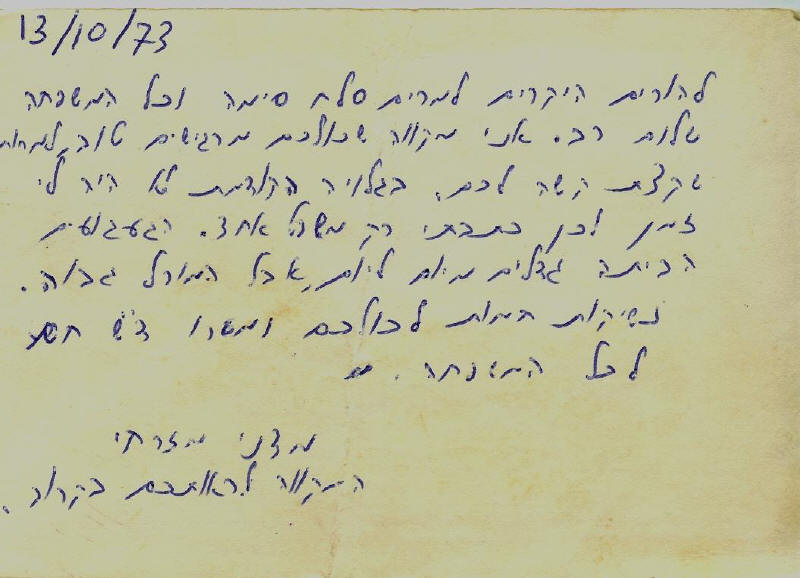 13/10/73
להורים היקרים למרים סלח סימה וכל המשפחה
שלום רב. אני מקווה שכולכם מרגישים טוב, למרות
שקצת קשה לכם. בגלויה הקודמת לא היה לי
זמן לכן כתבתי רק משפט אחד. הגעגועים
הביתה גדלים מיום ליום, אבל המורל גבוה.
נשיקות חמות לכולכם ומסרו ד"ש חם
לכל המשפחה.
מדני מזרחי
המקווה לראותכם בקרוב.